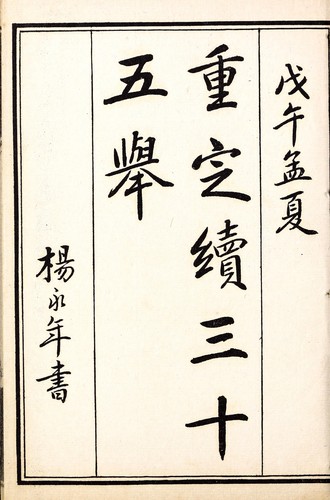 戊午孟夏
重定續三十
五舉
楊永年書